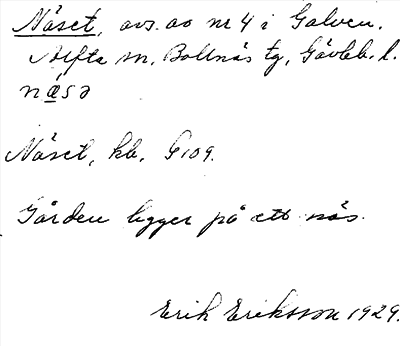 Näset, avs. av nr 4 i Galven.
Alfta sn, Bollnäs tg, Gävleb. l.
næsə
Näset, kb. G 109.
Gården ligger på ett näs.
Erik Eriksson 1929.